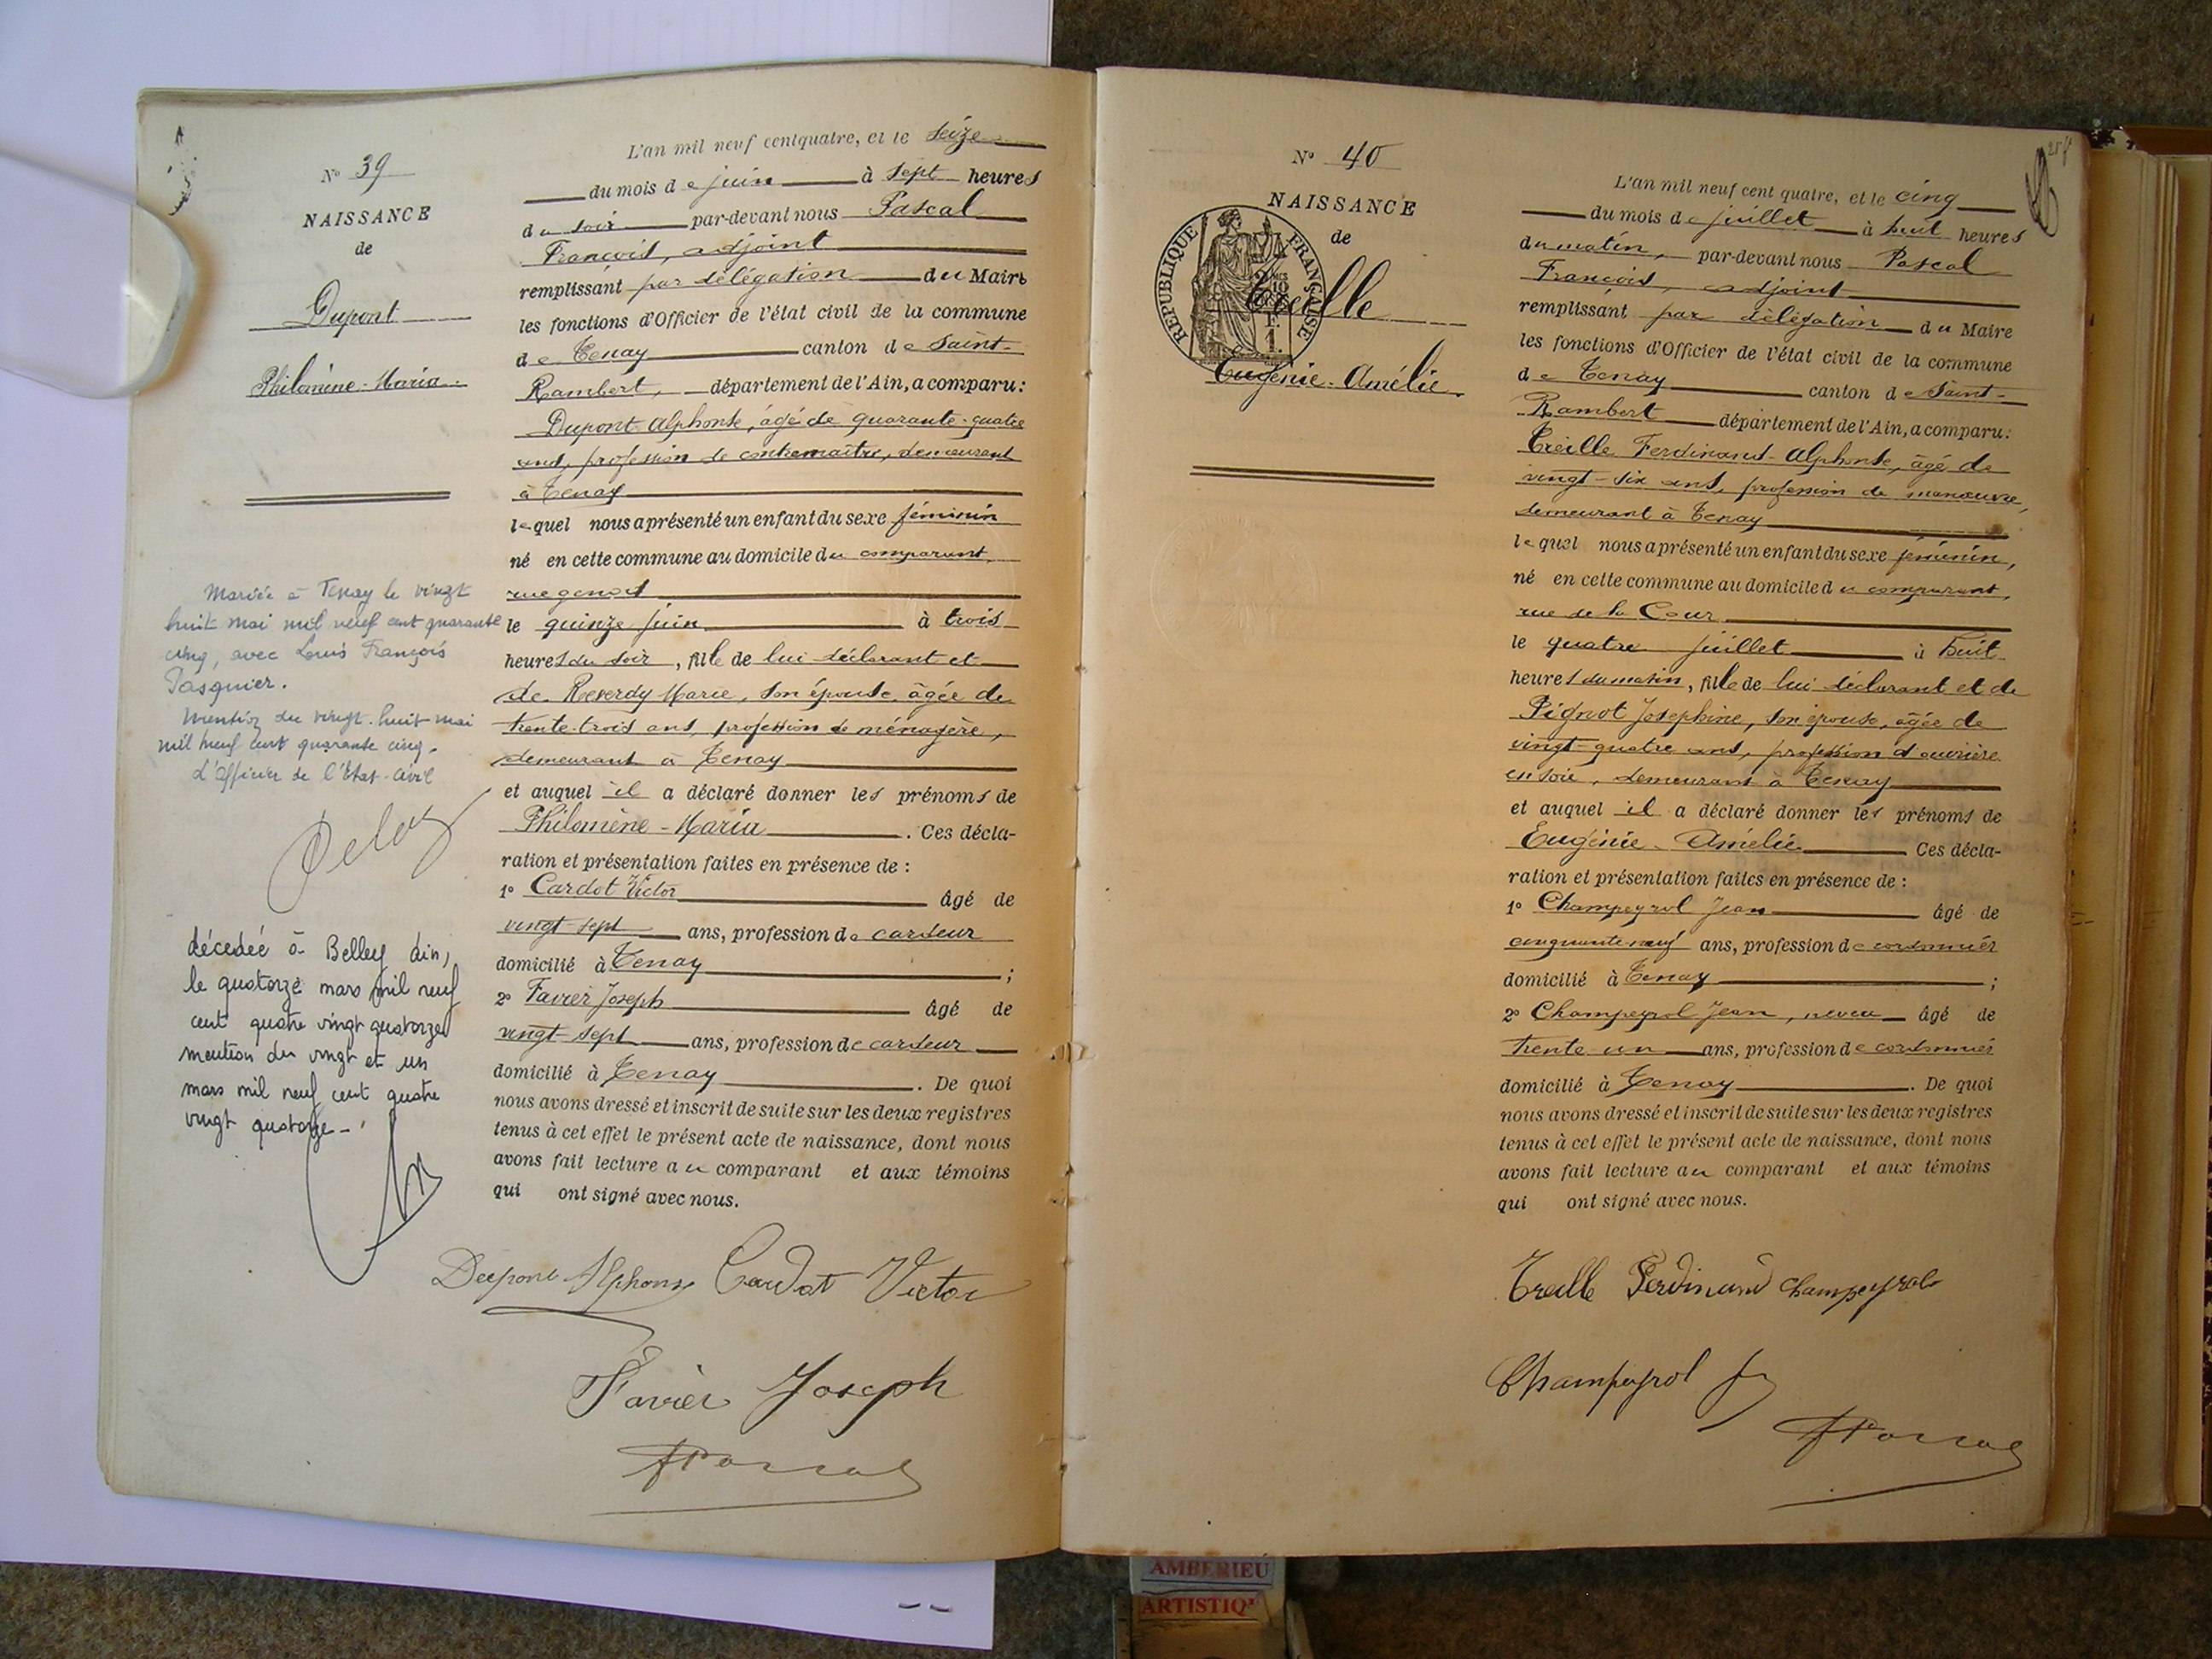 N° 39
NAISSANCE
de
Dupont
Philomène-Maria
Mariée à Tenay le vingt
huit mai mil neuf cent quarante
cinq, avec Louis François
Pasquier.
Mention du vingt-huit mai
mil neuf cent quarante cinq.
d'Officier de l'Etat-civil
décedéé à Belley Ain,
le quatorze mars mil neuf
cent quatre vingt quatorze
mention du vingt et un
mars mil neuf cent quatre
vingt quatorze -
L'an mil neuf cent quatre, et le seize
du mois de juin à sept heures
du soir par-devant nous Pascal
François, adjoint
remplissant par délégation du Maire
les fonctions d'Officier de l'état civil de la commune
de Tenay canton de Saint-
Rambert, département de l'Ain, a comparu:
Dupont Alphonse, âgé de quarante-quatre
ans, profession de contremaître, demeurant
à Tenay
lequel nous a présenté un enfant du sexe féminin
né en cette commune au domicile du comparant,
rue genod
le quinze juin à trois
heures du soir, fille de lui déclarant et
de Reverdy Marie, son épouse, âgée de
trente-trois ans, profession de ménagère,
demeurant à Tenay
et auquel il a déclaré donner les prénoms de
Philomène-Maria. Ces décla-
ration et présentation faites en présence de :
1° Cardot Victor âgé de
vingt-sept ans, profession de cardeur
domicilié à Tenay ;
2° Favier Joseph âgé de
vingt-sept ans, profession de cardeur
domicilié à Tenay. De quoi
nous avons dressé et inscrit de suite sur les deux registres
tenus à cet effet le présent acte de naissance, dont nous
avons fait lecture au comparant et aux témoins
qui ont signé avec nous.
Dupont Alphonse Cardot Victor
Favier Joseph
FPascal
N° 40
NAISSANCE
de
RÉPUBLIQUE FRANÇAISE
Treille
Eugénie-Amélie
L'an mil neuf cent quatre, et le cinq
du mois de juillet à huit heures
du matin, par-devant nous Pascal
François, adjoint
remplissant par délégation du Maire
les fonctions d'Officier de l'état civil de la commune
de Tenay canton de Saint-
Rambert département de l'Ain, a comparu:
Treille Ferdinand-Alphonse, âgé de
vingt-six ans, profession de manœuvre,
demeurant à Tenay
lequel nous a présenté un enfant du sexe féminin,
né en cette commune au domicile du comparant,
rue de la Cour
le quatre juillet à huit
heures du matin, fille de lui déclarant et de
Pignot Josephine, son épouse, âgée de
vingt-quatre ans, profession d'ouvrière
en soie, demeurant à Tenay
et auquel il a déclaré donner les prénoms de
Eugénie-Amélie Ces décla-
ration et présentation faites en présence de :
1° Champeyrol Jean âgé de
cinquante-neuf ans, profession de cordonnier
domicilié à Tenay ;
2° Champeyrol Jean, neveu âgé de
trente un ans, profession de cordonnier
domicilié à Tenay. De quoi
nous avons dressé et inscrit de suite sur les deux registres
tenus à cet effet le présent acte de naissance, dont nous
avons fait lecture au comparant et aux témoins
qui ont signé avec nous.
Treille Ferdinand Champeyrol
Champeyrol
FPascal
AMBERIEU
ARTISTIQ